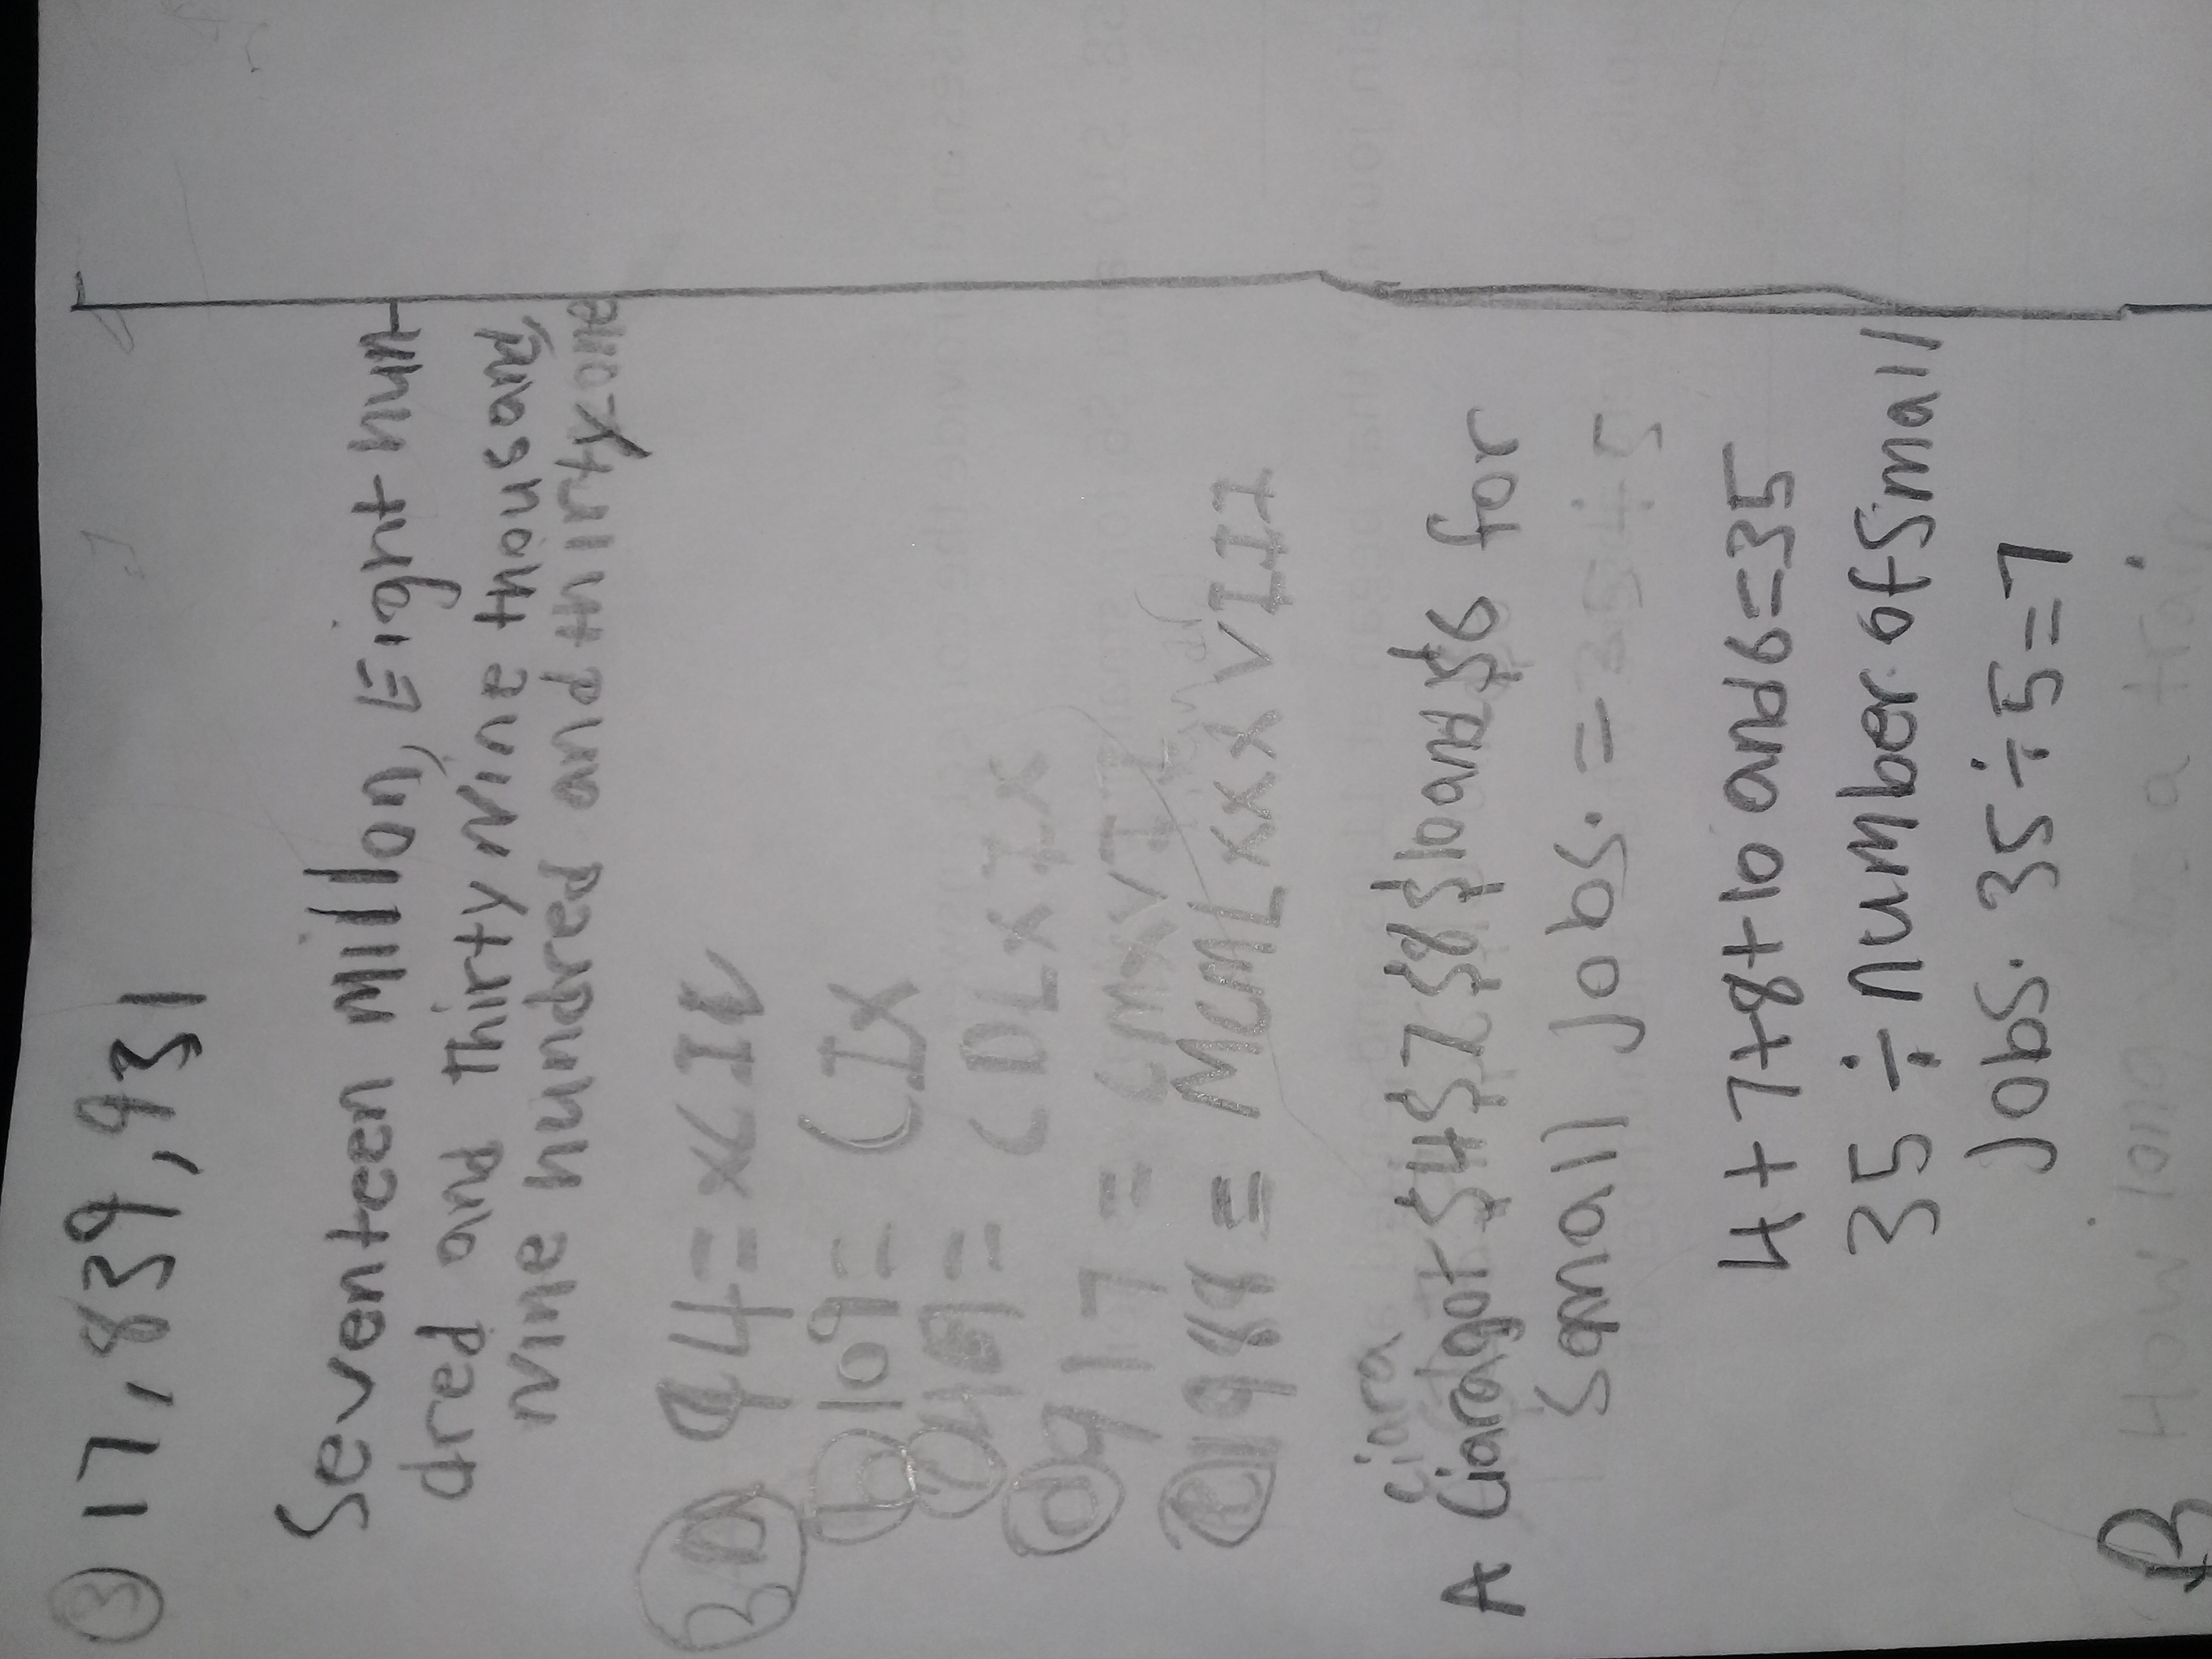 ③ 17,839,931
Seventeen millon, Eight hun-
dred and thirty nine thousand
nine hundred and thirty-one
94= XCIV
b 109= CIX
= CDLXIX
d 917 = CMXVII
1988 = MCMLXXXVIII
Ciara
A Ciara got $4 $7 $8 $10 and $6 for
Small jobs. =
4+7+8+10 and 6=35
35 ÷ number of small
jobs. 35÷5=7
B How long a